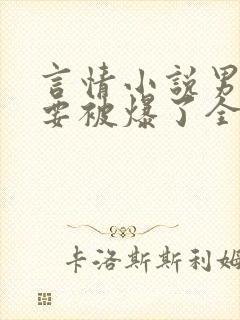 言情小说男
要被爆了全
卡洛斯斯利姆